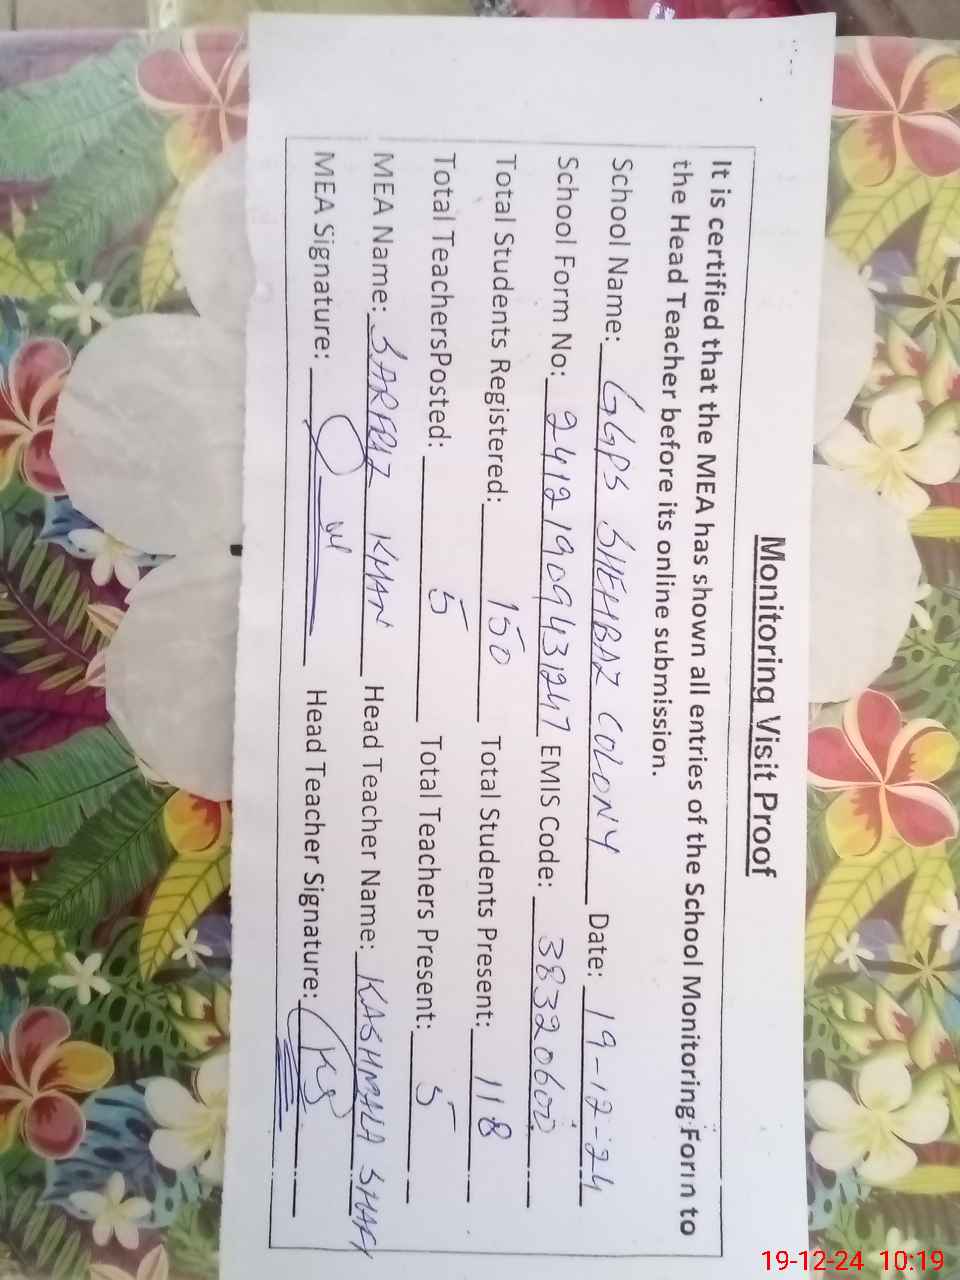 Monitoring Visit Proof
It is certified that the MEA has shown all entries of the School Monitoring Form to
the Head Teacher before its online submission.
School Name: GGPS SHEHBAZ COLONY Date: 19-12-24
School Form No: 24121909431247 EMIS Code: 38320602
Total Students Registered: 150 Total Students Present: 118
Total TeachersPosted: 5 Total Teachers Present: 5
MEA Name: SARFRAZ KHAN Head Teacher Name: KASHMALA SHAFY
MEA Signature: Head Teacher Signature: KS
19-12-24 10:19